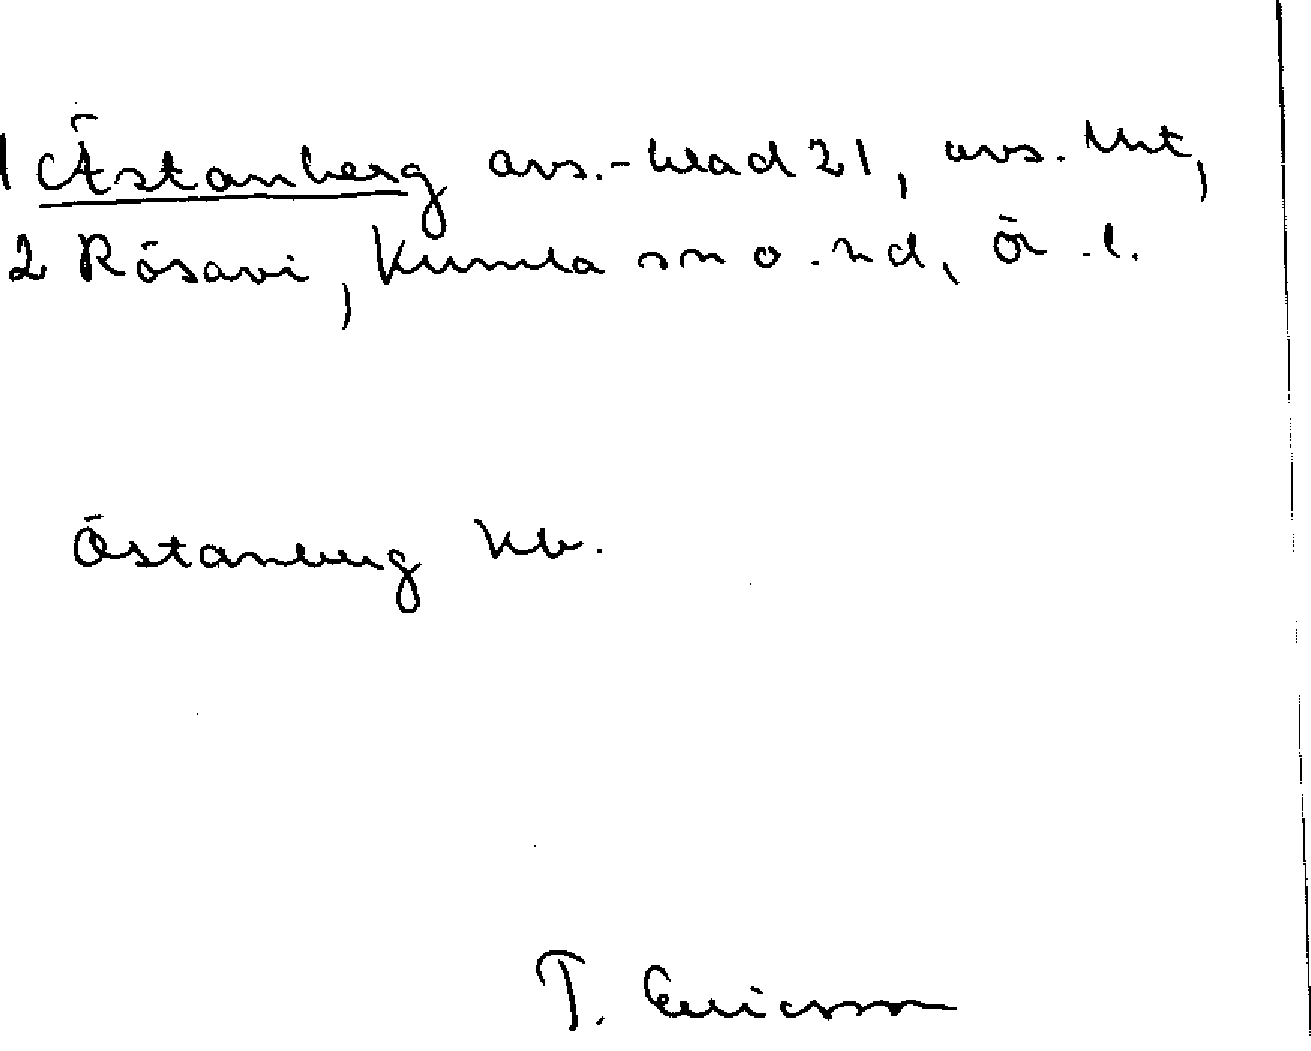 1 Åstanberg avs.-blad 21, avs. Unt,
2 Rösavi, Kumla sn o. hd, Ör. l.
Östanberg kb.
T. Ericsson